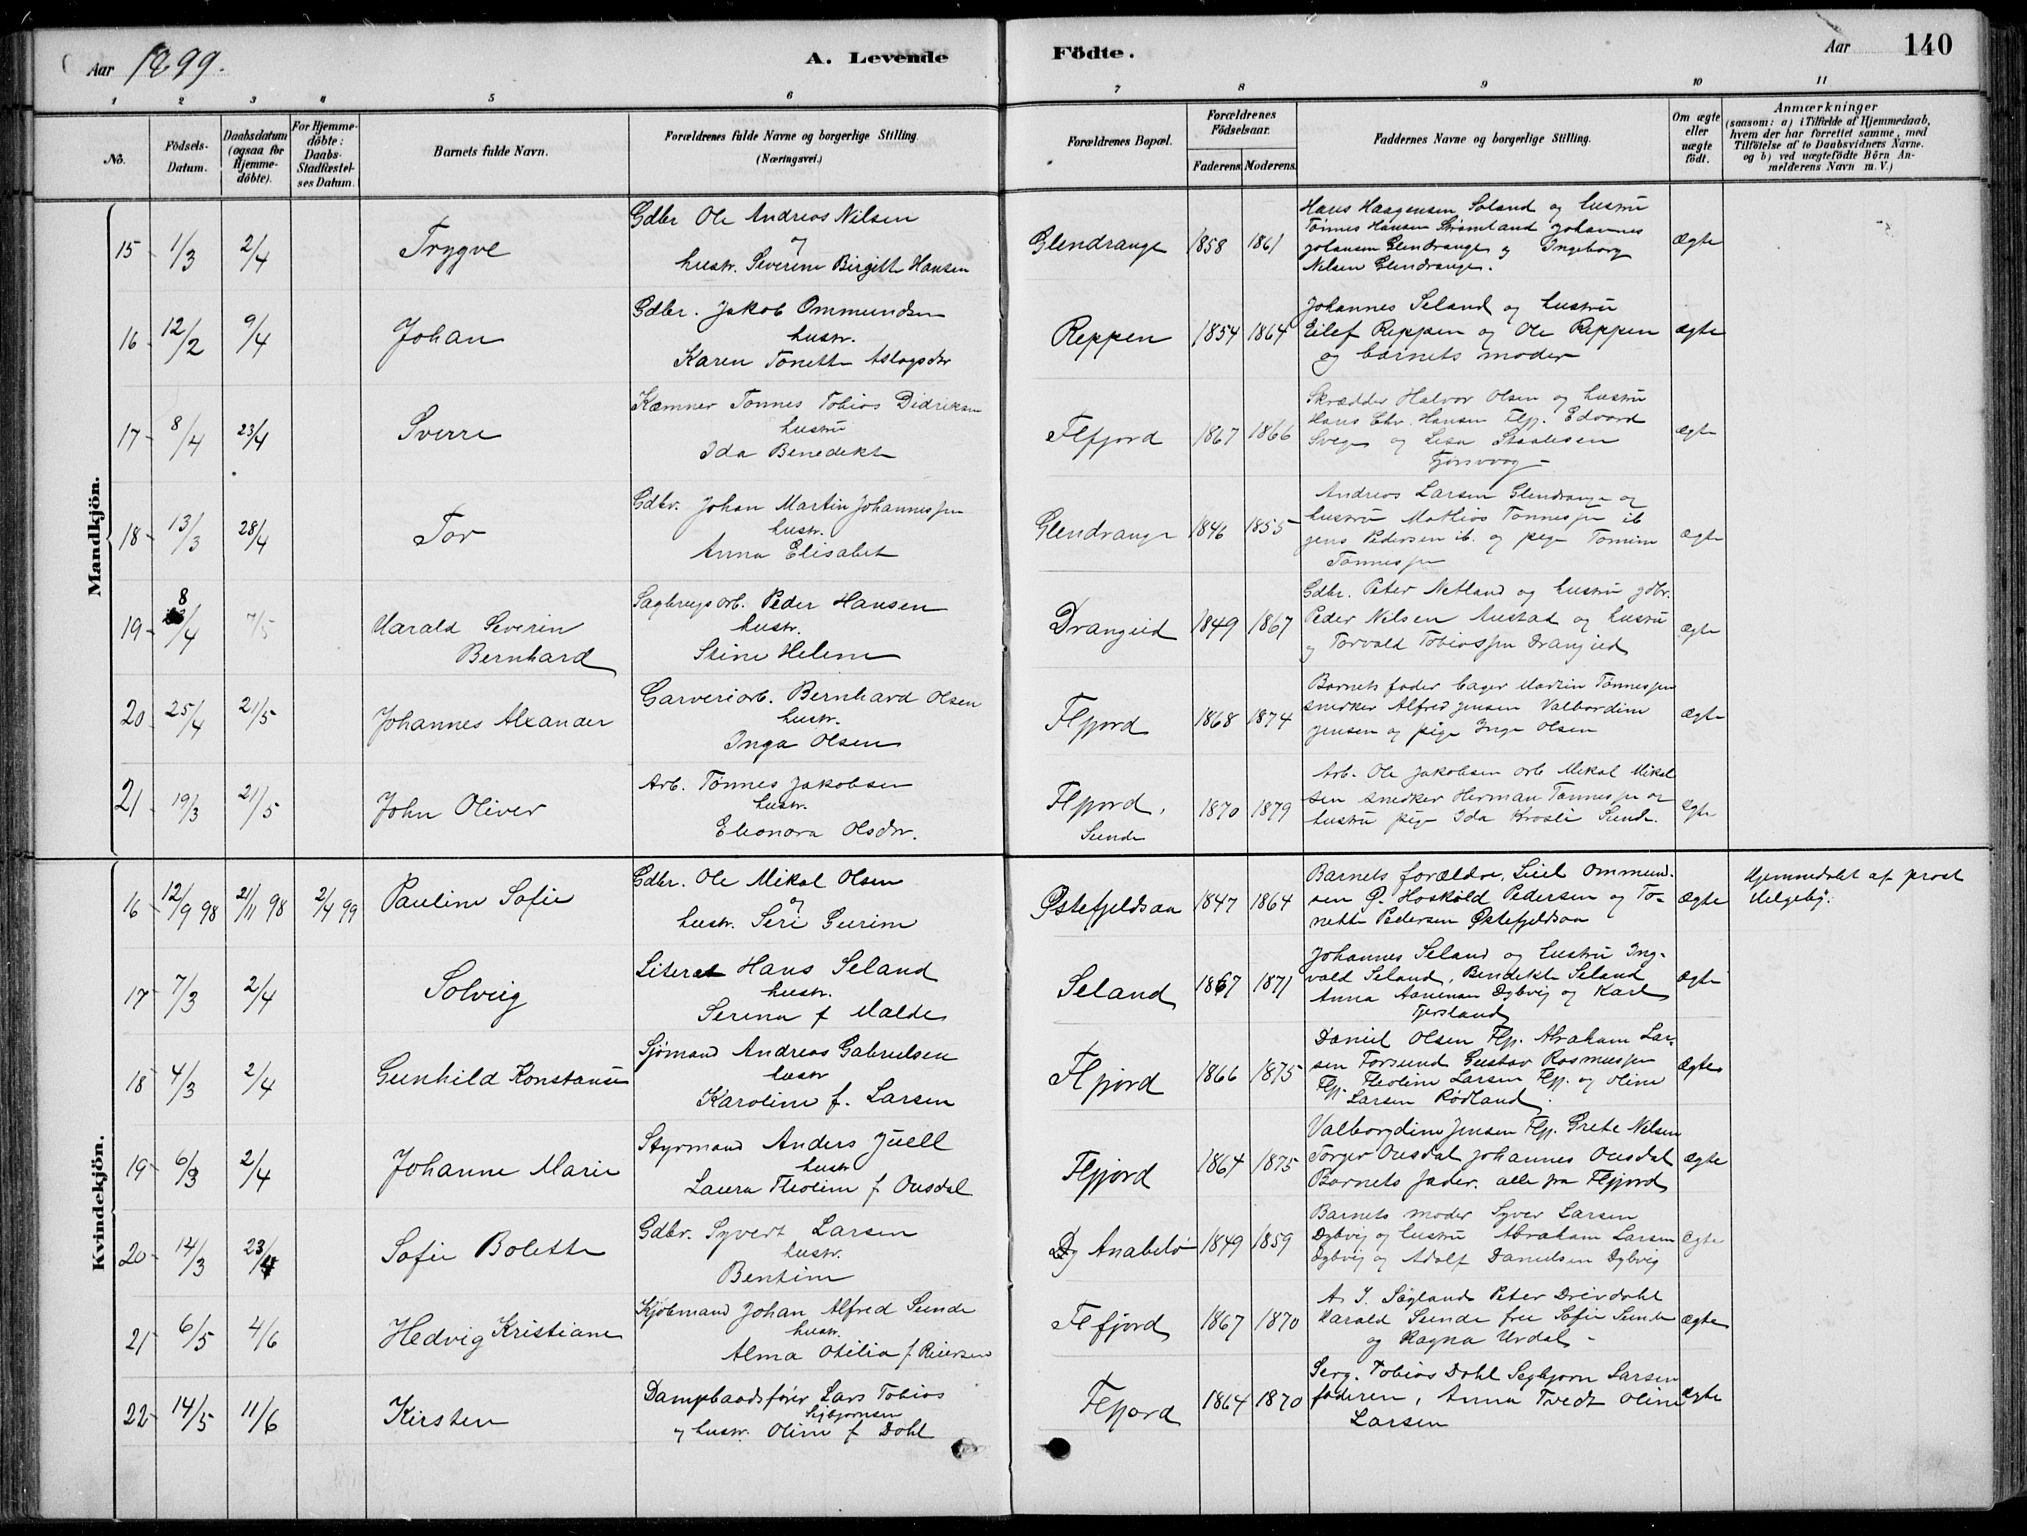 Aar 1899.
A. Levende
Födte.
Aar
140
1 2 3 4 5 6 7 8 9 10 11
No.
Födsels-Datum.
Daabsdatum (ogsaa for Hjemme-döbte).
For Hjemme-döbte: Daabs-Stadfæstel-ses Datum.
Barnets fulde Navn.
Forældrenes fulde Navne og borgerlige Stilling. (Næringsvei.)
Forældrenes Bopæl.
Forældrenes Födselsaar.
Faderens. Moderens.
Faddernes Navne og borgerlige Stilling.
Om ægte eller uægte födt.
Anmærkninger
(saasom: a) i Tilfælde af Hjemmedaab,
hvem der har forrettet samme, med
Tilföielse af to Daabsvidners Navne.
og b) ved uægtefödte Börn An-
melderens Navn m. V.)
Mandkjön.
15 1/3 2/4 Trygve
Gdbr Ole Andreas Nilsen
og
hustr. Severine Birgitte Hansen
Glendrange 1858 1861
Hans Haagensen Soland og hustru
Tønnes Hansen Strømland Johannes
Johansen Glendrange og Ingeborg
Nilsen Glendrange.
ægte
16 12/2 9/4 Johan
Gdbr. Jakob Ommundsen
hustr.
Karen Tonette Aslagsdtr
Reppen 1854 1864
Johannes Seland og hustru
Eilef Reppen og Ole Reppen
og barnets moder
ægte
17 8/4 23/4 Sverre
Kæmner Tønnes Tobias Didriksen
hustru
Ida Benedikte
Flfjord 1867 1866
Skrædder Halvor Olsen og hustru
Hans Chr. Hansen Flfj. Edvard
Svege og Lisa Staalesen
ægte
18 13/3 28/4 Tor
Gdbr. Johan Martin Johannessen
hustr.
Anna Elisabet
Glendrange 1846 1855
Andreas Larsen Glendrange og
hustru Mathias Tønnessen ib
Jens Pedersen ib. og pige Tomine
Tønnessen
ægte
19 8/4 7/5 Harald Severin
Bernhard
Sagbrugsarb. Peder Hansen
hustr.
Stine Helene
Drangeid 1849 1867
Gdbr. Peter Netland og hustru gdbr.
Peder Nilsen Austad og hustru
og Torvald Tobiassen Drangeid
ægte
20 25/4 21/5 Johannes Alxander
Garveriarb. Bernhard Olsen
hustr.
Inga Olsen
Flfjord 1868 1874
Barnets fader bager Martin Tønnessen
snedker Alfred Jensen Valbordine
Jensen og pige Inge Olsen
ægte
21 19/3 21/5 John Oliver
Arb. Tønnes Jakobsen
hustr.
Eleonora Olsdtr.
Flfjord,
Sunde
1870 1879
Arb. Ole Jakobsen arb Mikal Mikal
sen snedker Herman Tønnessen og
hustru pige Ida Krosli Sunde.
ægte
Kvindekjön.
16 12/9 98 21/11 98 2/4 99 Pauline Sofie
Gdbr. Ole Mikal Olsen
og
hustr. Seri Gurine
Østefjeldsaa 1847 1864
Barnets forældre, Siel Ommund-
sen Ø. Hoskold Pedersen og To-
nette Pedersen Østefjeldsaa
ægte
Hjemmedøbt af prost
Helgeby.
17 7/3 2/4 Solveig
Literat Hans Seland
hustr.
Serina f Malde
Seland 1867 1871
Johannes Seland og hustru Ing-
vald Seland, Bendikte Seland
Anna Aanensen Dybvig og Karl
Tjersland
ægte
18 4/3 2/4 Gunhild Konstanse
Sjømand Andreas Gabrielsen
hustr
Karoline f. Larsen
Flfjord 1866 1875
Daniel Olsen Flfj. Abraham Lar-
sen Forsund Gustav Rasmussen
Flfj. Teoline Larsen Flfj. og Oline
Larsen Rødland.
ægte
19 6/3 2/4 Johanne Marie
Styrmand Anders Juell
hustr
Laura Teoline f Ousdal
Flfjord 1864 1875
Valborgdine Jensen Flfj. Grete Nilsen
Torger Ousdal Johannes Ousdal
Barnets fader. alle fra Flfjord
ægte
20 14/3 23/4 Sofie Bolette
Gdbr. Syvert Larsen
hustr.
Bentine
Dy Anabelø 1849 1859
Barnets moder Syver Larsen
Dybvig og hustru Abraham Larsen
Dybvig og Adolf Danielsen Dybvig
ægte
21 6/5 4/6 Hedvig Kristiane
Kjøbmand Johan Alfred Sunde
hustr.
Alma Otilia f Reiersen
Flfjord 1867 1870
A. I. Søyland Peter Dreivdahl
Harald Sunde fru Sofie Sunde
og Ragna Urdal
ægte
22 14/5 11/6 Kirsten
Dampbaadsfører Lars Tobias
Sigbjørnsen
og hustr. Oline f Dahl
Flfjord 1864 1870
Serg. Tobias Dahl Segbjørn Larsen
faderen, Anna Tvedt Oline
Larsen
ægte